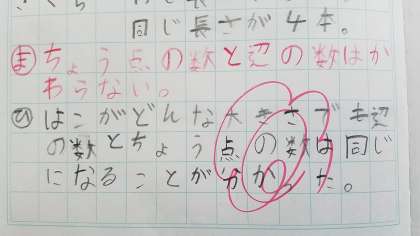 同じ長さが4本。
ま ちょう点の数と辺の数はか
わらない。
ひ はこがどんな大きさでも辺
の数とちょう点の数は同じ
になることが分かった。